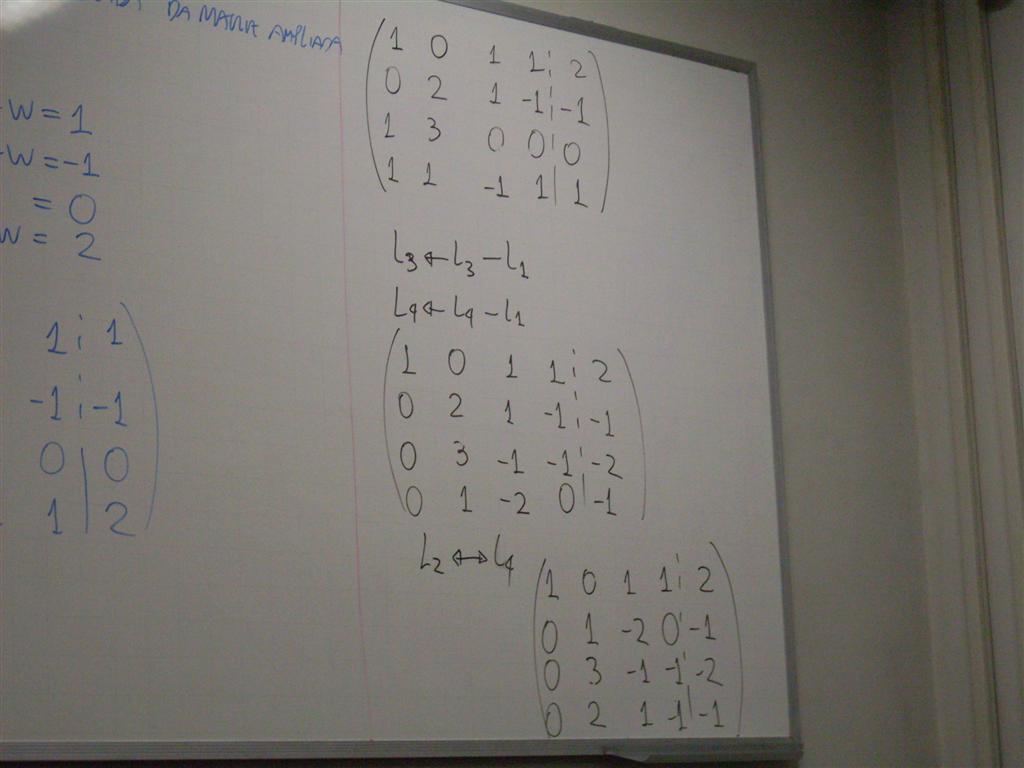 DA MATRIZ AMPLIADA
-W = 1
-W = -1
= 0
W = 2
1 ¦ 1
-1 ¦ -1
0 | 0
1 | 2
1 0 1 1 ¦ 2
0 2 1 -1 ¦ -1
1 3 0 0 ¦ 0
1 1 -1 1 | 1
L3 ← L3 - L1
L4 ← L4 - L1
1 0 1 1 ¦ 2
0 2 1 -1 ¦ -1
0 3 -1 -1 ¦ -2
0 1 -2 0 | -1
L2 ↔ L4
1 0 1 1 ¦ 2
0 1 -2 0 ¦ -1
0 3 -1 -1 ¦ -2
0 2 1 -1 | -1